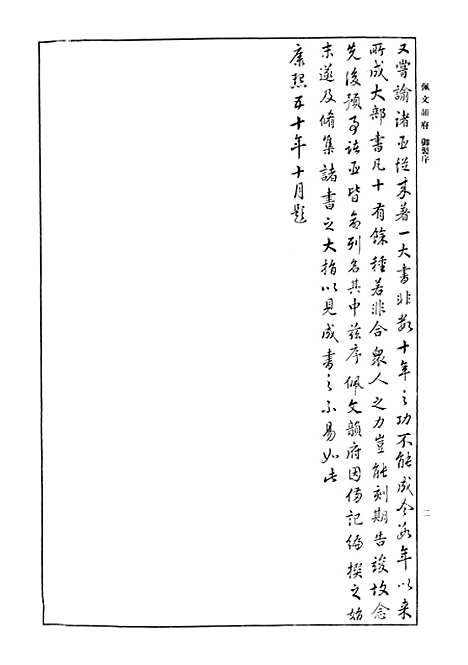 佩文韻府 御製序
二
又嘗諭諸臣從來著一大書非數十年之功不能成今數年以來
所成大部書凡十有餘種若非合衆人之力豈能刻期告竣故念
先後預事諸臣皆命列名其中茲序佩文韻府因備記編撰之始
末遂及脩集諸書之大指以見成書之不易如此
康熙五十年十月題